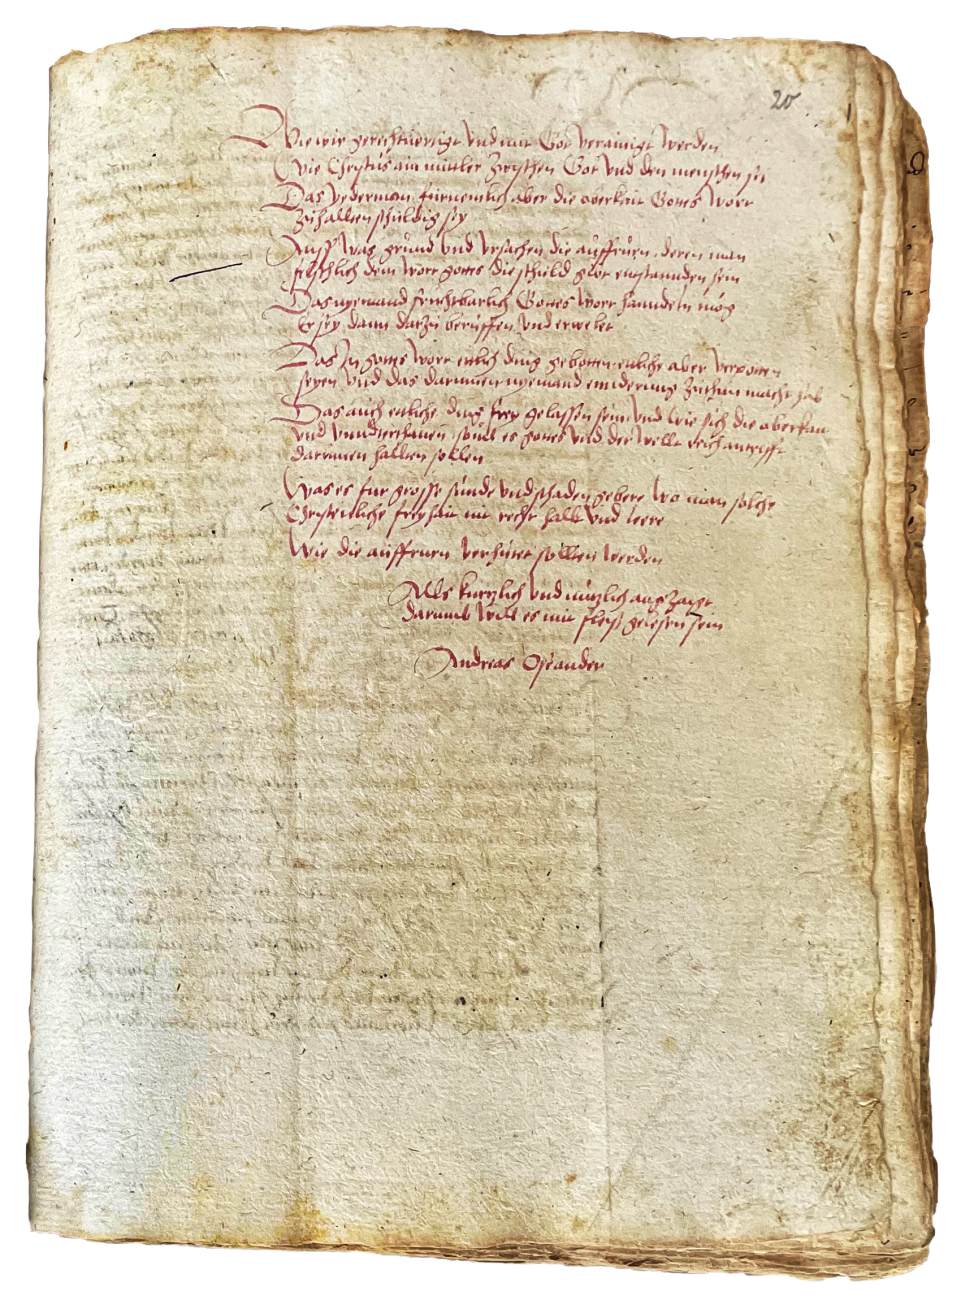 20
Wie wir gerechtuertigt vnd mit Got verainigt werden
Wie Christus ain mittler zwyschen Got vnd den menschen sei
Das yederman fürnemlich aber die oberkait Gottes wort
zuhallten schuldig sey
Auss was grund vnd vrsachen die auffruren, deren man
felschlich dem wort gottes die schuld gibt enstannden sein
Das nyemand fruchtbarlich Gottes wort hanndeln mög
Er sey dann darzu beruffen vnd erwelet
Das In gottes wort ettlich ding gebotten ettliche aber verpotten
seyen vnd das darinnen nyemand ennderung zuthun macht hab
Das auch ettliche ding frey gelassen seint vnd wie sich die oberkait
vnd vnnderthanen souil es gottes vnd der wellt reich antrifft
darinnen hallten sollen
Was es fur grosse sunde vnd schaden gebere wo man solche
Christenliche freyhait nit recht hallt vnd leere
Wie die auffruren verhutet sollten werden
Alls kurtzlich vnd nutzlich angezaigt
darumb will es mit fleis gelesen sein
Andreas Osiander